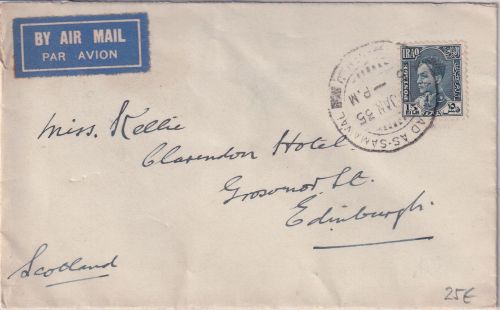 BY AIR MAIL
PAR AVION
IRAQ
JAN 35
P.M
AD AS-SAMAWAL
Miss. Kellie
Clarendon Hotel
Grosvenor St.
Edinburgh.
Scotland
25€